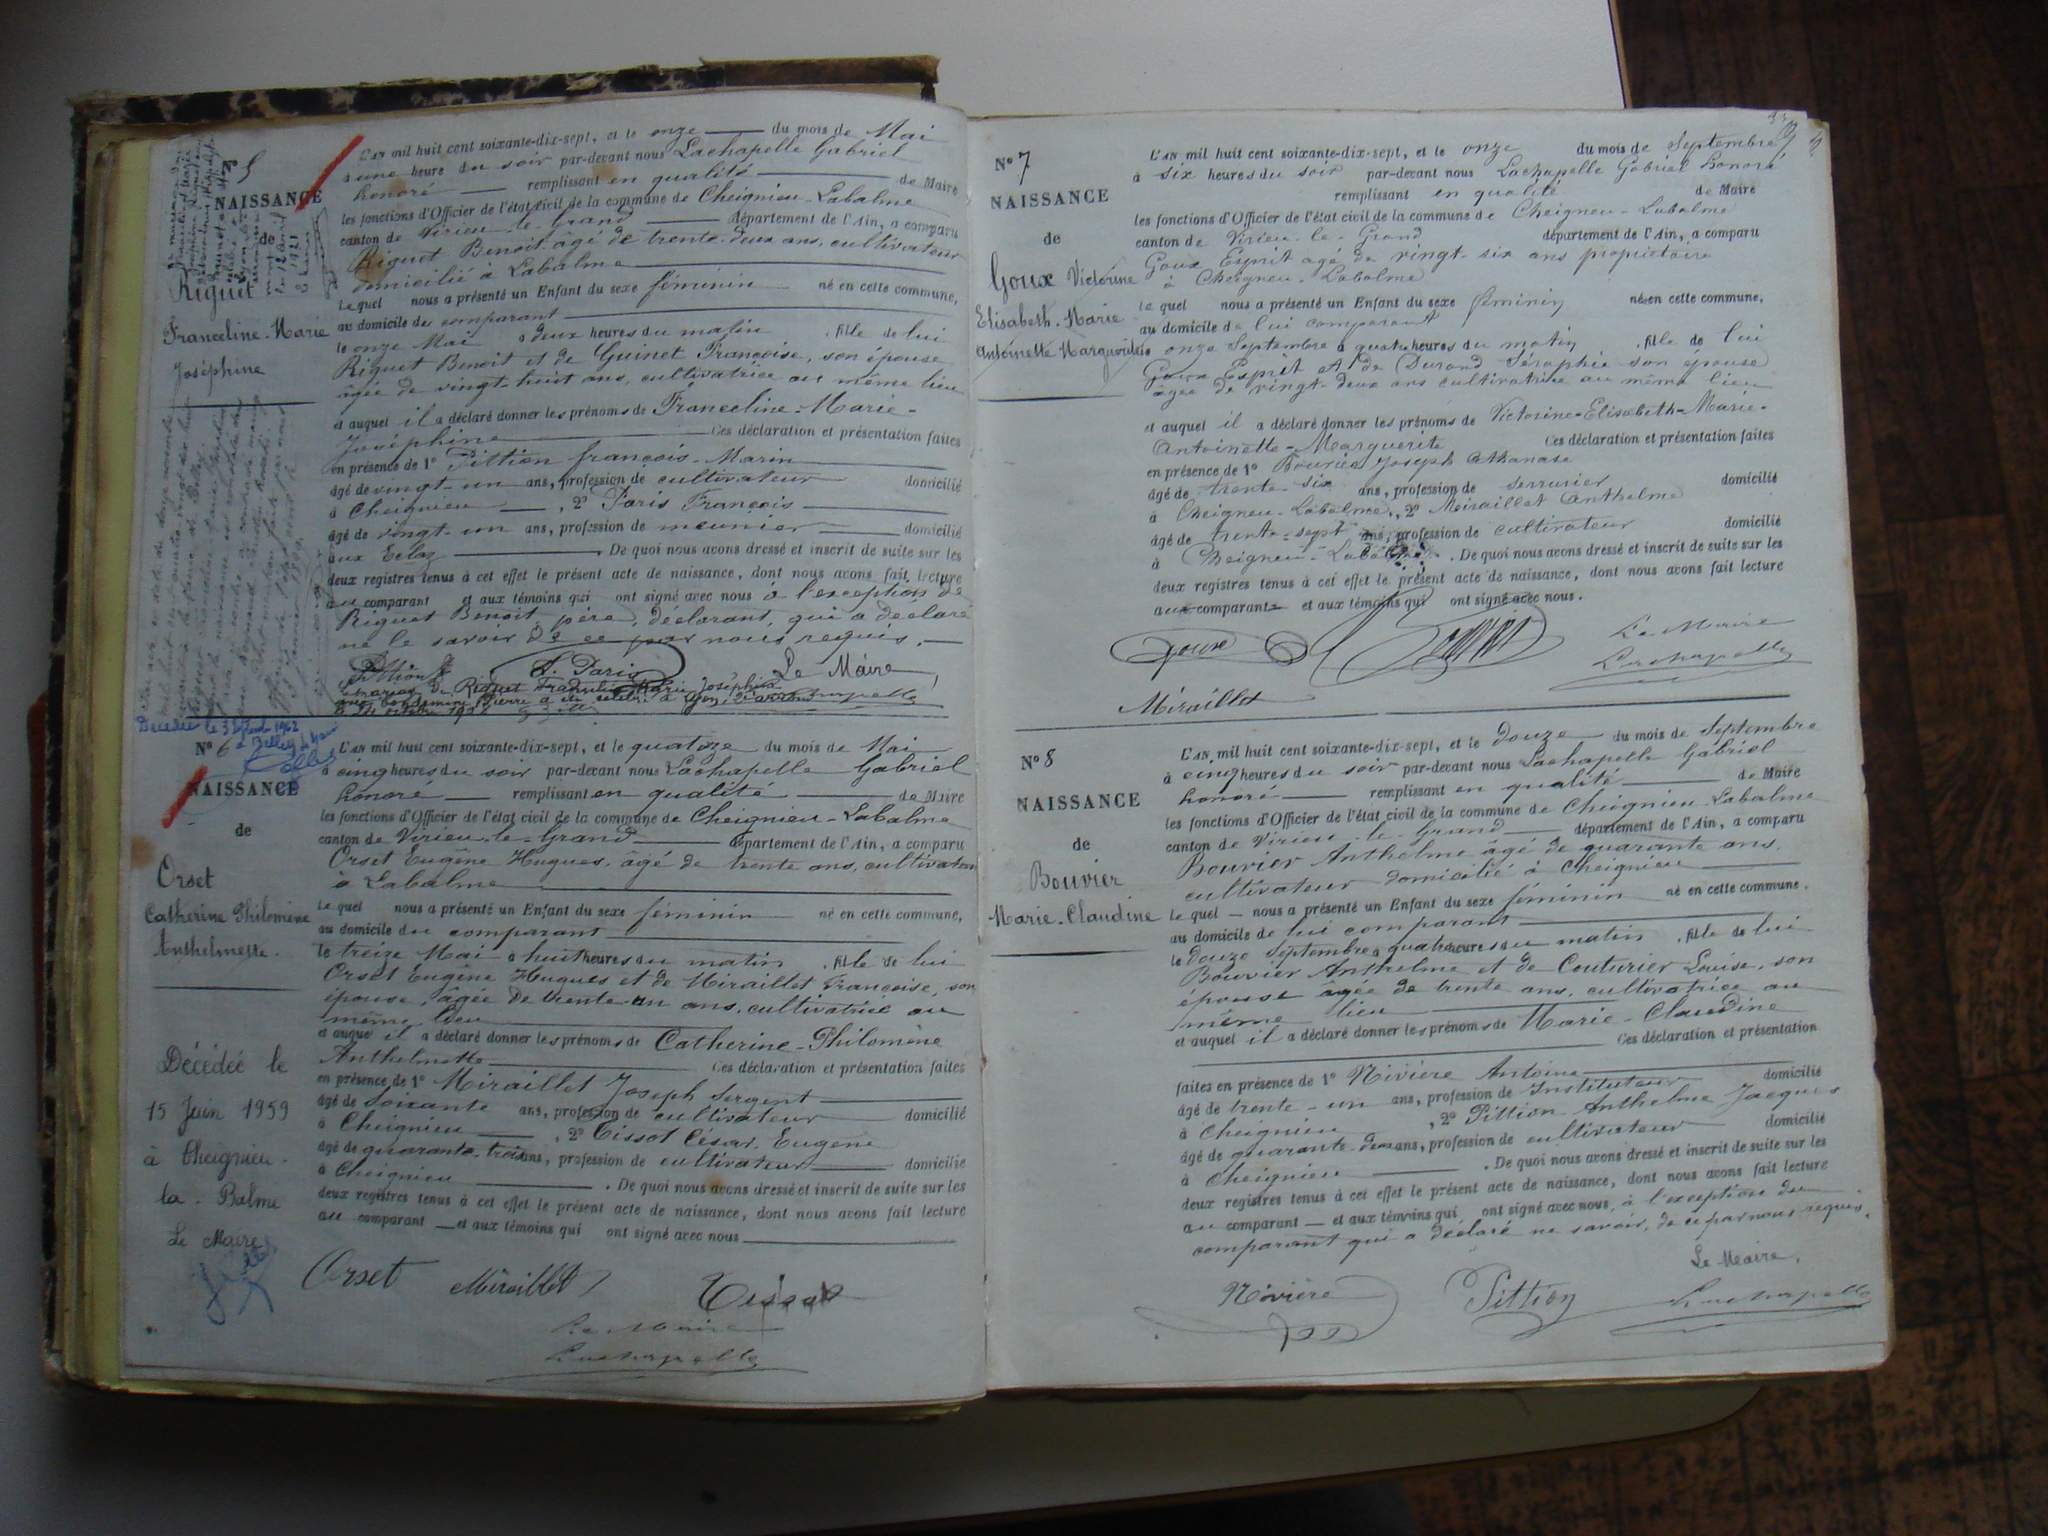 N° 5
NAISSANCE
de
Riguet
Franceline-Marie
Joséphine
L'AN mil huit cent soixante-dix-sept, et le onze du mois de Mai
à une heure du soir par-devant nous Lachapelle Gabriel
honoré remplissant en qualité de Maire
les fonctions d'Officier de l'état civil de la commune de Cheignieu-Labalme
canton de Virieu-le-Grand département de l'Ain, a comparu
Riguet Benoit âgé de trente-deux ans, cultivateur
domicilié à Labalme
Le quel nous a présenté un Enfant du sexe féminin né en cette commune,
au domicile du comparant
le onze Mai à deux heures du matin, fille de lui
Riguet Benoit et de Guinet Françoise, son épouse
âgée de vingt-huit ans, cultivatrice au même lieu
et auquel il a déclaré donner les prénoms de Franceline-Marie-
Joséphine Ces déclaration et présentation faites
en présence de 1° Pittion françois-Marin
âgé de vingt-un ans, profession de cultivateur domicilié
à Cheignieu, 2° Paris François
âgé de vingt-un ans, profession de meunier domicilié
aux Eclaz. De quoi nous avons dressé et inscrit de suite sur les
deux registres tenus à cet effet le présent acte de naissance, dont nous avons fait lecture
au comparant et aux témoins qui ont signé avec nous à l'exception de
Riguet Benoit, père, déclarant, qui a déclaré
ne le savoir de ce par nous requis.
Pittion F. Paris Le Maire,
Lachapelle
Décédée le 3 Septembre 1962
à Belley
N° 6
NAISSANCE
de
Orset
Catherine Philomène
Anthelmette.
Décédée le
15 Juin 1959
à Cheignieu-
la-Balme
Le Maire
L'AN mil huit cent soixante-dix-sept, et le quatorze du mois de Mai
à cinq heures du soir par-devant nous Lachapelle Gabriel
honoré remplissant en qualité de Maire
les fonctions d'Officier de l'état civil de la commune de Cheignieu-Labalme
canton de Virieu-le-Grand département de l'Ain, a comparu
Orset Eugène Hugues, âgé de trente ans, cultivateur
à Labalme
Le quel nous a présenté un Enfant du sexe féminin né en cette commune,
au domicile du comparant
le treize Mai à huit heures du matin, fille de lui
Orset Eugène Hugues et de Miraillet Françoise, son
épouse, âgée de trente-un ans, cultivatrice au
même lieu
et auquel il a déclaré donner les prénoms de Catherine-Philomène
Anthelmette Ces déclaration et présentation faites
en présence de 1° Miraillet Joseph Sergent
âgé de soixante ans, profession de cultivateur domicilié
à Cheignieu, 2° Tissot César Eugène
âgé de quarante-trois ans, profession de cultivateur domicilié
à Cheignieu. De quoi nous avons dressé et inscrit de suite sur les
deux registres tenus à cet effet le présent acte de naissance, dont nous avons fait lecture
au comparant et aux témoins qui ont signé avec nous
Orset Miraillet Tissot
Le Maire
Lachapelle
N° 7
NAISSANCE
de
Goux Victorine
Elisabeth-Marie
Antoinette Marguerite
L'AN mil huit cent soixante-dix-sept, et le onze du mois de Septembre
à six heures du soir par-devant nous Lachapelle Gabriel honoré
remplissant en qualité de Maire
les fonctions d'Officier de l'état civil de la commune de Cheigneu-Labalme
canton de Virieu-le-Grand département de l'Ain, a comparu
Goux Esprit agé de vingt-six ans propriétaire
à Cheigneu-Labalme
Le quel nous a présenté un Enfant du sexe féminin né en cette commune,
au domicile de lui comparant
le onze Septembre à quatre heures du matin, fille de lui
Goux Esprit et de Durand Séraphie son épouse
agée de vingt-deux ans cultivatrice au même lieu
et auquel il a déclaré donner les prénoms de Victorine-Elisabeth-Marie-
Antoinette-Marguerite Ces déclaration et présentation faites
en présence de 1° Bouvier Joseph Athanase
âgé de trente-six ans, profession de serrurier domicilié
à Cheigneu-Labalme, 2° Miraillet Anthelme
âgé de trente-sept ans, profession de cultivateur domicilié
à Cheigneu-Labalme. De quoi nous avons dressé et inscrit de suite sur les
deux registres tenus à cet effet le présent acte de naissance, dont nous avons fait lecture
aux comparants et aux témoins qui ont signé avec nous.
Goux
Le Maire
Lachapelle
Miraillet
N° 8
NAISSANCE
de
Bouvier
Marie-Claudine
L'AN mil huit cent soixante-dix-sept, et le douze du mois de Septembre
à cinq heures du soir par-devant nous Lachapelle Gabriel
honoré remplissant en qualité de Maire
les fonctions d'Officier de l'état civil de la commune de Cheignieu-Labalme
canton de Virieu-le-Grand département de l'Ain, a comparu
Bouvier Anthelme âgé de quarante ans,
cultivateur domicilié à Cheignieu
Le quel nous a présenté un Enfant du sexe féminin né en cette commune,
au domicile de lui comparant
le douze Septembre à quatre heures du matin, fille de lui
Bouvier Anthelme et de Couturier Louise, son
épouse âgée de trente ans, cultivatrice au
même lieu
et auquel il a déclaré donner les prénoms de Marie-Claudine
Ces déclaration et présentation
faites en présence de 1° Rivière Antoine domicilié
âgé de trente-un ans, profession de Instituteur
à Cheignieu, 2° Pittion Anthelme Jacques
âgé de quarante-deux ans, profession de cultivateur domicilié
à Cheignieu. De quoi nous avons dressé et inscrit de suite sur les
deux registres tenus à cet effet le présent acte de naissance, dont nous avons fait lecture
au comparant et aux témoins qui ont signé avec nous, à l'exception du
comparant qui a déclaré ne savoir, de ce par nous requis.
Le Maire,
Rivière Pittion Lachapelle